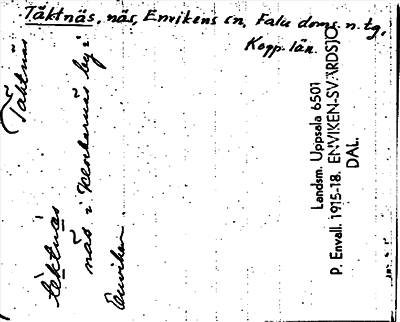 Täktnäs, näs, Envikens sn, Falu doms. n. tg,
Kopp. län.
Täktnäs
täktnäs
näs i Klockarnäs by i
Enviken.
Landsm. Uppsala 6501
P. Envall. 1915-18. ENVIKEN-SVÄRDSJÖ
DAL.